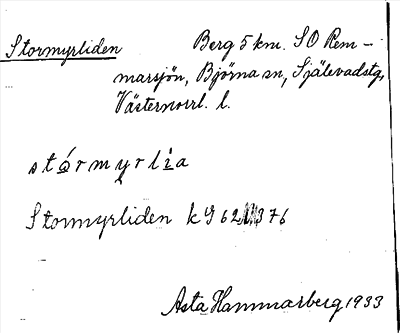 Stormyrliden Berg 5 km. SO Rem-
marsjön, Björna sn, Själevadstg,
Västernorrl. l.
stórmyrlìa
Stormyrliden kg 62 376
Asta Hammarberg 1933